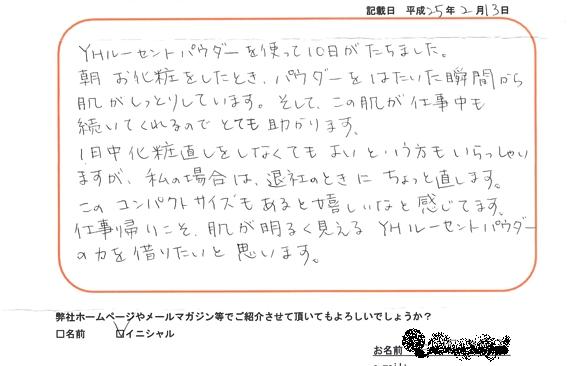 記載日 平成25年2月13日
YHルーセントパウダーを使って10日がたちました。
朝 お化粧をしたとき、パウダーをはたいた瞬間から
肌がしっとりしています。そして、この肌が仕事中も
続いてくれるのでとても助かります。
1日中化粧直しをしなくてもよいという方もいらっしゃい
ますが、私の場合は、退社のときにちょっと直します。
このコンパクトサイズもあると嬉しいなと感じてます。
仕事帰りこそ、肌が明るく見えるYHルーセントパウダー
の力を借りたいと思います。
弊社ホームページやメールマガジン等でご紹介させて頂いてもよろしいでしょうか?
□名前 ☑イニシャル
お名前